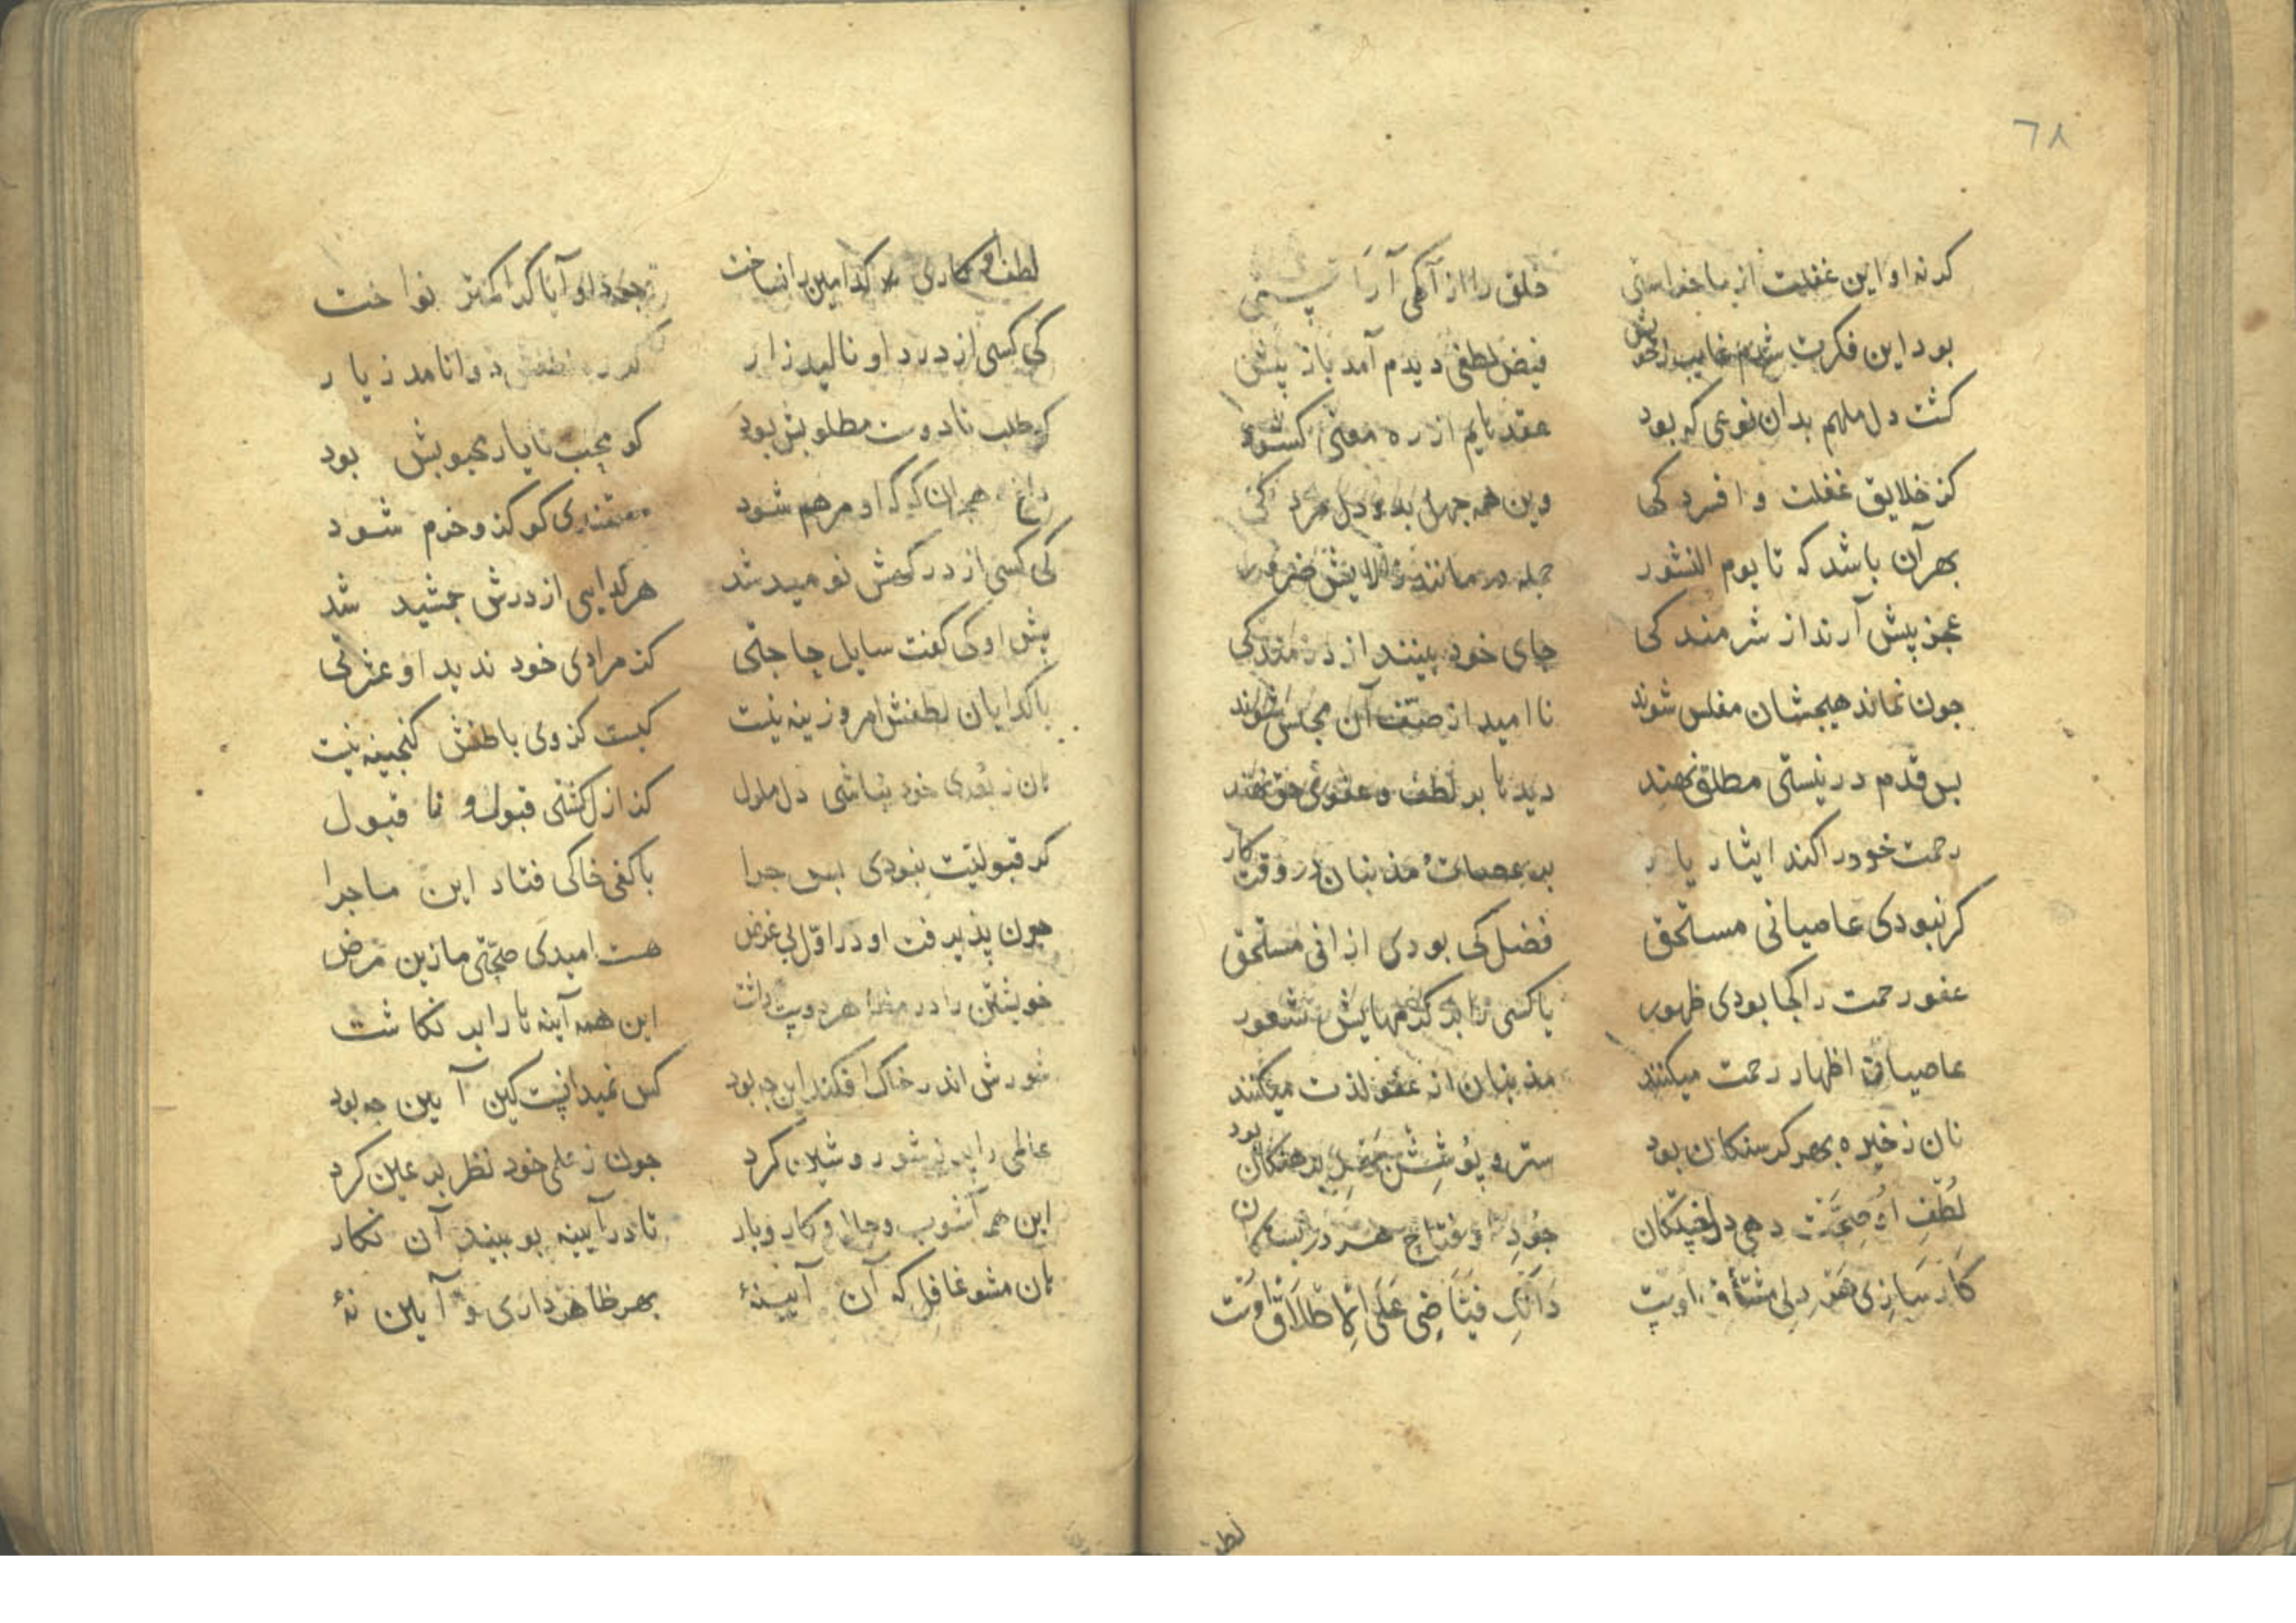 ٦٨
کرنه او این غفلت از ما خواستی خلق را از آگهی آراستی
بود این فکرت شدم غایب ز خویش فیض لطفی دیدم آمد باز پیش
کشت دل ملهم بدان نوعی که بود عقدهایم از ره معنی کشود
کز خلایق غفلت و افسردکی وین همه جهل بد و دل مردکی
بهر آن باشد که تا یوم النشور جمله درمانند
عجز پیش آرند از شرمندکی جای خود بینند از درمندکی
جون نماند هیجشان مفلس شوند ناامید از صنف آن مجلس شوند
بس قدم در نیستی مطلق نهند دیدها بر لطف و عفو حق نهند
رحمت خود را کند ایثار یار بر عصیان مذنبان در وقت کار
کر نبودی عاصیانی مستحق فضل کی بودی ازانی مستحق
عفو رحمت را کجا بودی ظهور با کسی را بر کرمهایش شعور
عاصیان اظهار رحمت میکنند مذنبان از عفو لذت میکنند
نان ذخیره بهر کرسنکان بود ستر و پوشش بهر برهنکان بود
لطف او صحت دهی دلخستکان جود او فتاح هر دربستکان
کارسازی هر دلی مشتاق اوست دانک فیاضی علی الاطلاق اوست
لطف
لطف او کاری کدامین را نساخت او آیا کرا کمتر نواخت
کی کسی از درد او نالید زار دوا نامد ز یار
کو طلب تا دوست مطلوبش بود کو محب تا یار محبوبش بود
داغ هجران کو که او مرهم شود مستمندی کو کزو خرم شود
کی کسی از درکهش نومید شد هر کدایی از درش جمشید شد
پیش او کی کفت سایل حاجتی کز مرادی خود ندید او عزتی
با کدایان لطفش امروزینه نیست کیست کز وی باطنش کنجینه نیست
هان ز بعدی خود نباشی دل ملول کز ازل کشتی قبول و نا قبول
کر قبولیت نبودی بس جرا با کفی خاکی فتاد این ماجرا
جون پذیرفت او در اول بی غرض هست امیدی صحتی ما زین مرض
خویشتن را در مظاهر دوست داشت این همه آینه تا را بر نکاشت
شورش اندر خاک افکند این جه بود کس نمیدانست کین آیین جه بود
عالمی را پر ز شور و شین کرد جون ز علمی خود نظر بر عین کرد
این همه آشوب و حال و کار و بار تا در آیینه ببیند آن نکار
هان مشو غافل که آن آیینهٔ بهر ظاهرداری و آیین نهٔ